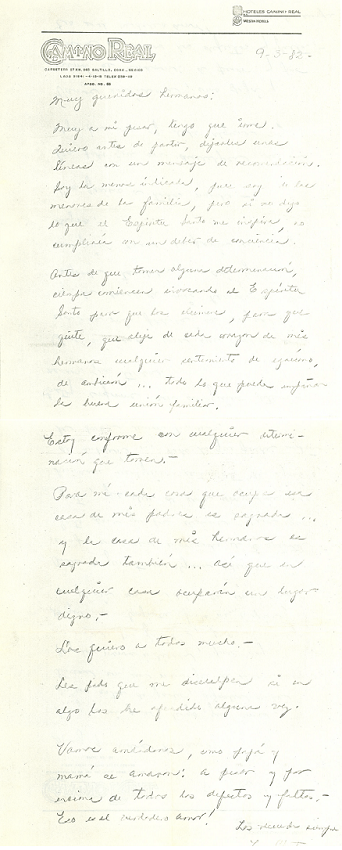 HOTELES CAMINO REAL
CAMINO REAL
9-3-82-
Muy queridos hermanos:
Muy a mi pesar, tengo que irme.-
Quiero antes de partir, dejarles unas
líneas con un mensaje de
Soy la menos indicada, pues soy de las
menores de la familia, pero si no digo
lo que el Espíritu Santo me inspira, no
cumpliría con un deber de conciencia.
Antes de que tomen alguna determinación,
siempre comiencen invocando al Espíritu
Santo para que los ilumine, para que
quite, que aleje de cada corazón de mis
hermanos cualquier sentimiento de egoísmo,
de ambición ... todo lo que pueda
la buena unión familiar.
Estoy conforme con cualquier determi-
nación que tomen.-
Para mí cada cosa que ocupa
casa de mis padres es sagrada ...
y la casa de mis hermanos es
sagrada también ... así que en
cualquier casa ocuparán un lugar
digno.-
Los quiero a todos mucho.-
Les pido que me disculpen si en
algo los he ofendido alguna vez.
Vamos amándonos, como papá y
mamá se amaron: a pesar y por
encima de todos los defectos y faltas.-
Eso es el verdadero amor!
Los recuerda siempre